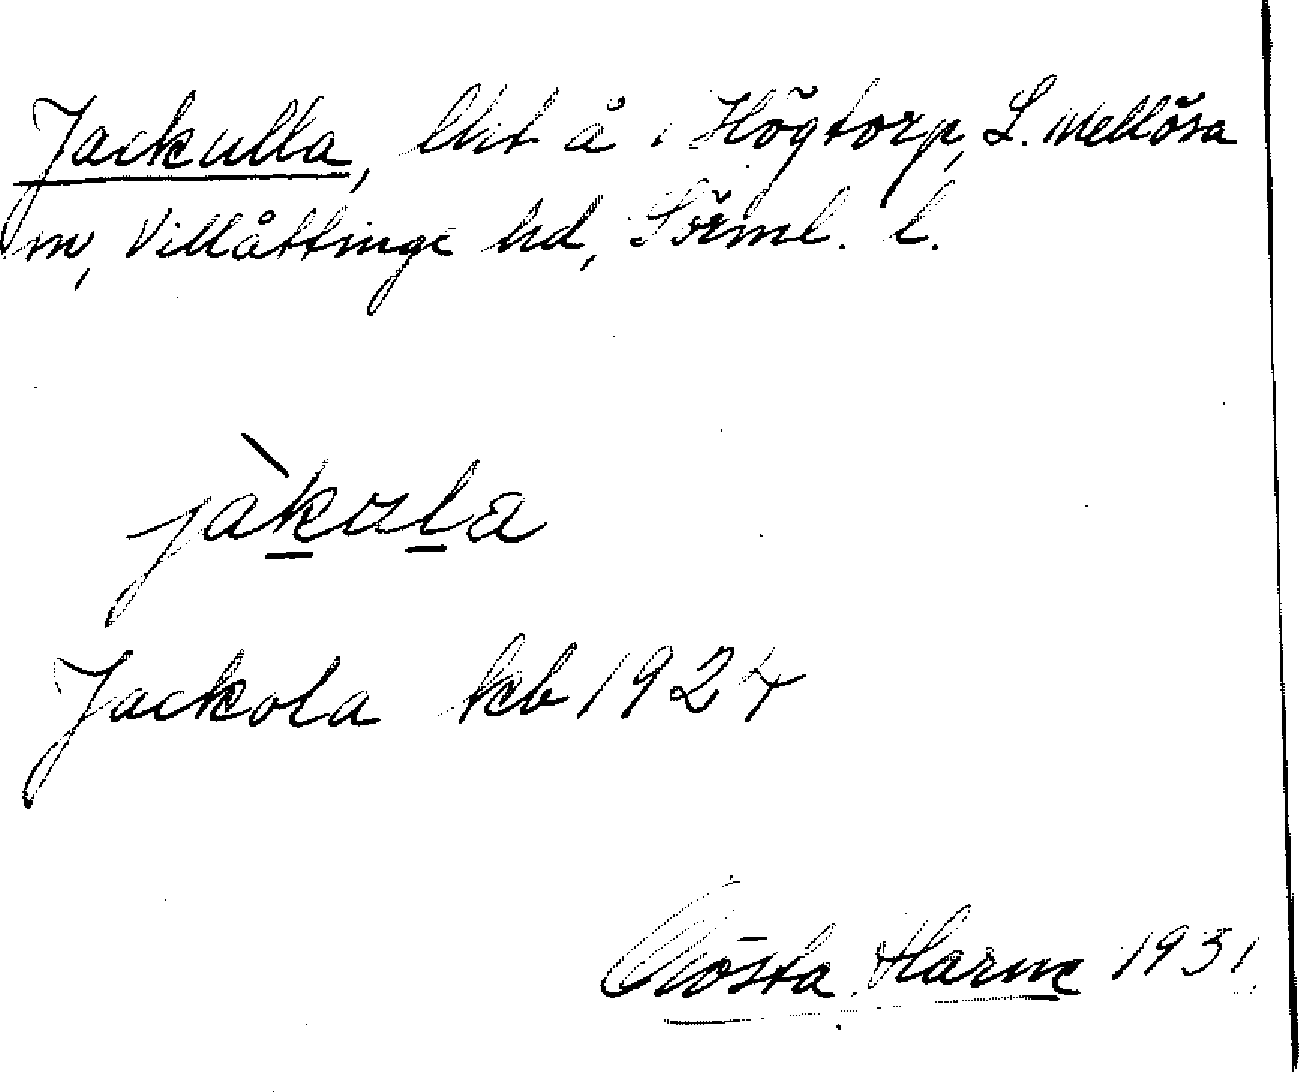 Jackulla, lht å i Högtorp, L. Mellösa
sn, Villåttinge hd, Sörml. l.
jàkula
Jackola kb 1924
Gösta Harne 1931